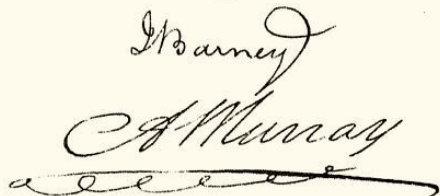 J Barney
A Murray